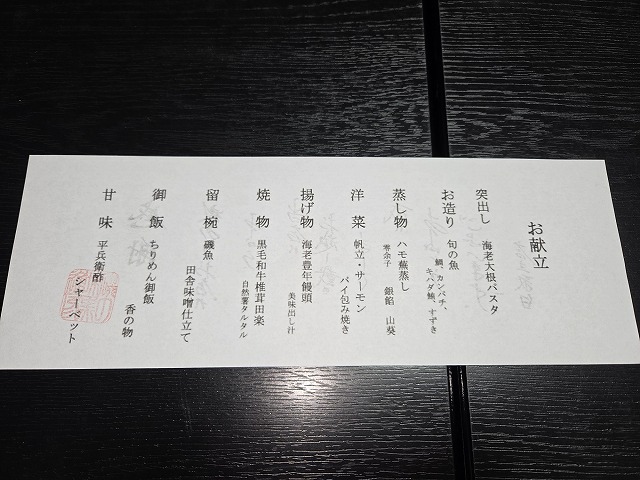 お献立
突出し 海老大根パスタ
お造り 旬の魚
鯛、カンパチ、
キハダ鮪、すずき
蒸し物 ハモ蕪蒸し
零余子 銀餡 山葵
洋菜 帆立・サーモン
パイ包み焼き
揚げ物 海老豊年饅頭
美味出し汁
焼物 黒毛和牛椎茸田楽
自然薯タルタル
留椀 磯魚
田舎味噌仕立て
御飯 ちりめん御飯
香の物
甘味 平兵衛酢
シャーベット